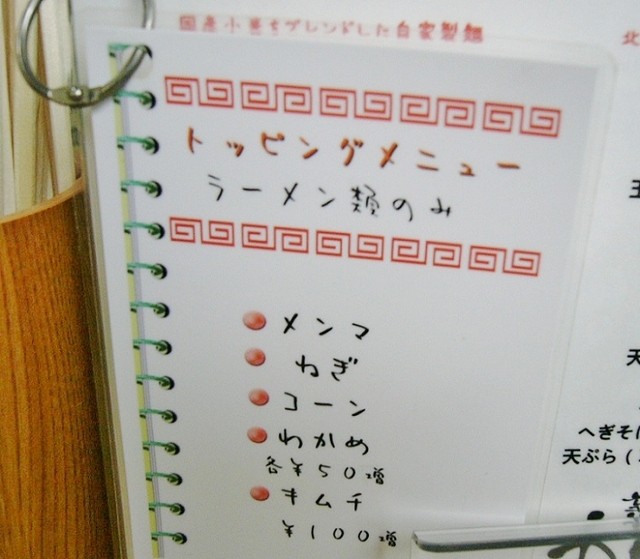 国産小麦をブレンドした自家製麺
トッピングメニュー
ラーメン類のみ
メンマ
ねぎ
コーン
わかめ
各¥50増
キムチ
¥100増
北
天
へぎそば
天ぷら(